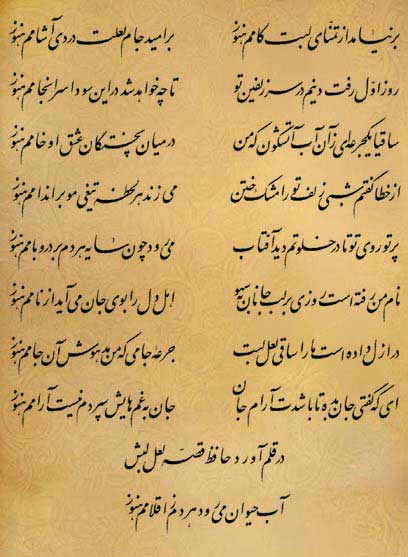 برنیامد از تمنای لبت کامم هنوز بر امید جام لعلت دردی آشامم هنوز
روز اول رفت دینم در سر زلفین تو تا چه خواهد شد در این سودا سرانجامم هنوز
ساقیا یک جرعه‌ای زان آب آتشگون که من در میان پختگان عشق او خامم هنوز
از خطا گفتم شبی زلف تو را مشک ختن می‌زند هر لحظه تیغی مو بر اندامم هنوز
پرتو روی تو تا در خلوتم دید آفتاب می‌رود چون سایه هر دم بر در و بامم هنوز
نام من رفته است روزی بر لب جانان به سهو اهل دل را بوی جان می‌آید از نامم هنوز
در ازل داده است ما را ساقی لعل لبت جرعه جامی که من مدهوش آن جامم هنوز
ای که گفتی جان بده تا باشدت آرام جان جان به غم‌هایش سپردم نیست آرامم هنوز
در قلم آورد حافظ قصه لعل لبش
آب حیوان می‌رود هر دم ز اقلامم هنوز